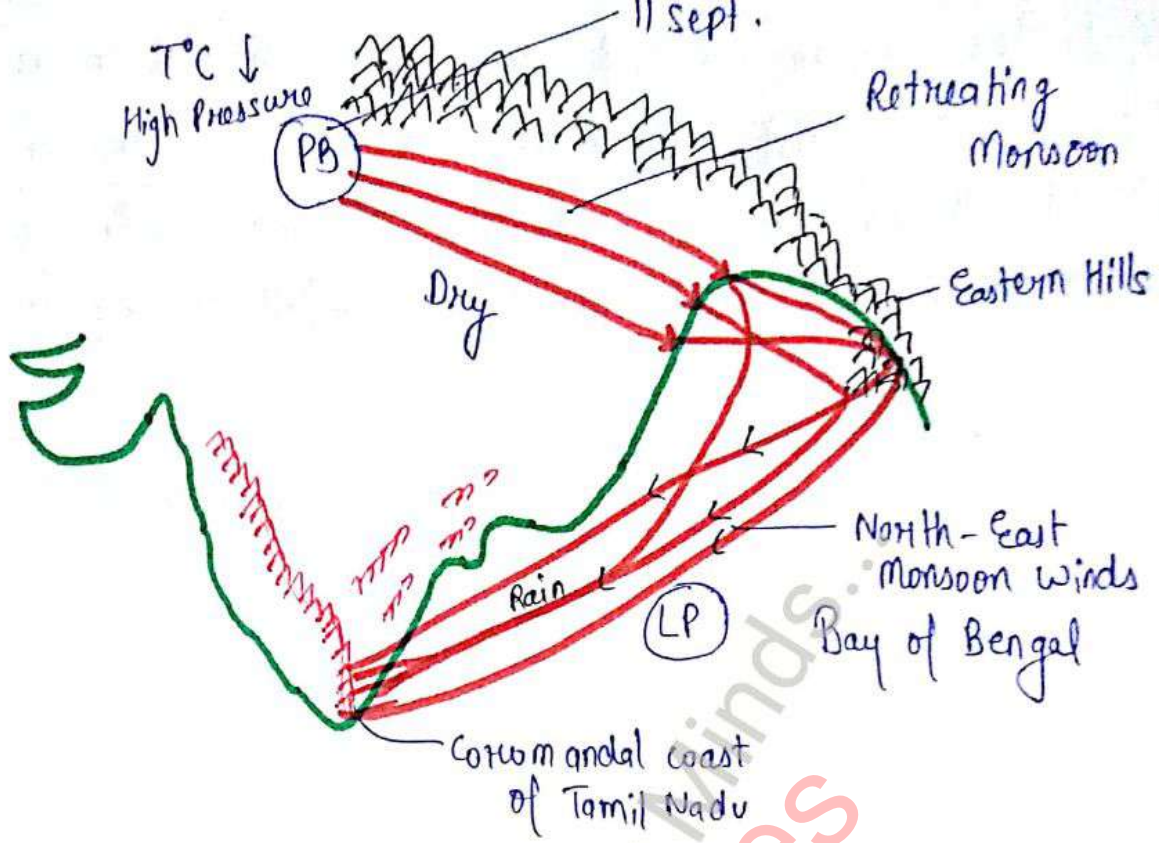 11 sept.
T°C ↓
High Pressure
PB
Retreating
Monsoon
Dry
Eastern Hills
North-East
Monsoon winds
Rain
LP
Bay of Bengal
Coromandal coast
of Tamil Nadu
Minds...
es